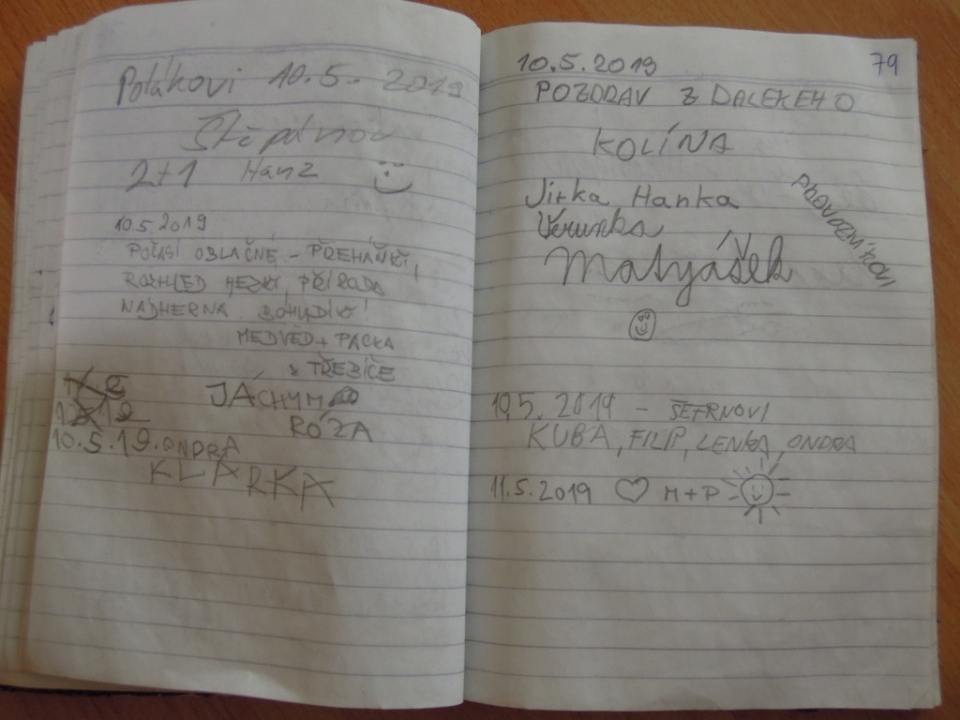 Polákovi 10.5. 2019
Štěpánov
2+1 Hanz
10.5.2019
POČASÍ OBLAČNÉ - PŘEHÁŇKY,
ROZHLED HEZKÝ, PŘÍRODA
NÁDHERNÁ BOHUDÍKY!
MEDVĚD + PACKA
z TŘEBÍČE
JÁCHYM
RÓZA
10.5.19. ONDRA
KLÁRKA
79
10.5.2019
POZDRAV Z DALEKÉHO
KOLÍNA
Jitka Hanka
Verunka
Matyášek
10.5. 2019 - ŠEFRNOVI
KUBA, FILIP, LENKA, ONDRA
11.5.2019 ♡ M+P